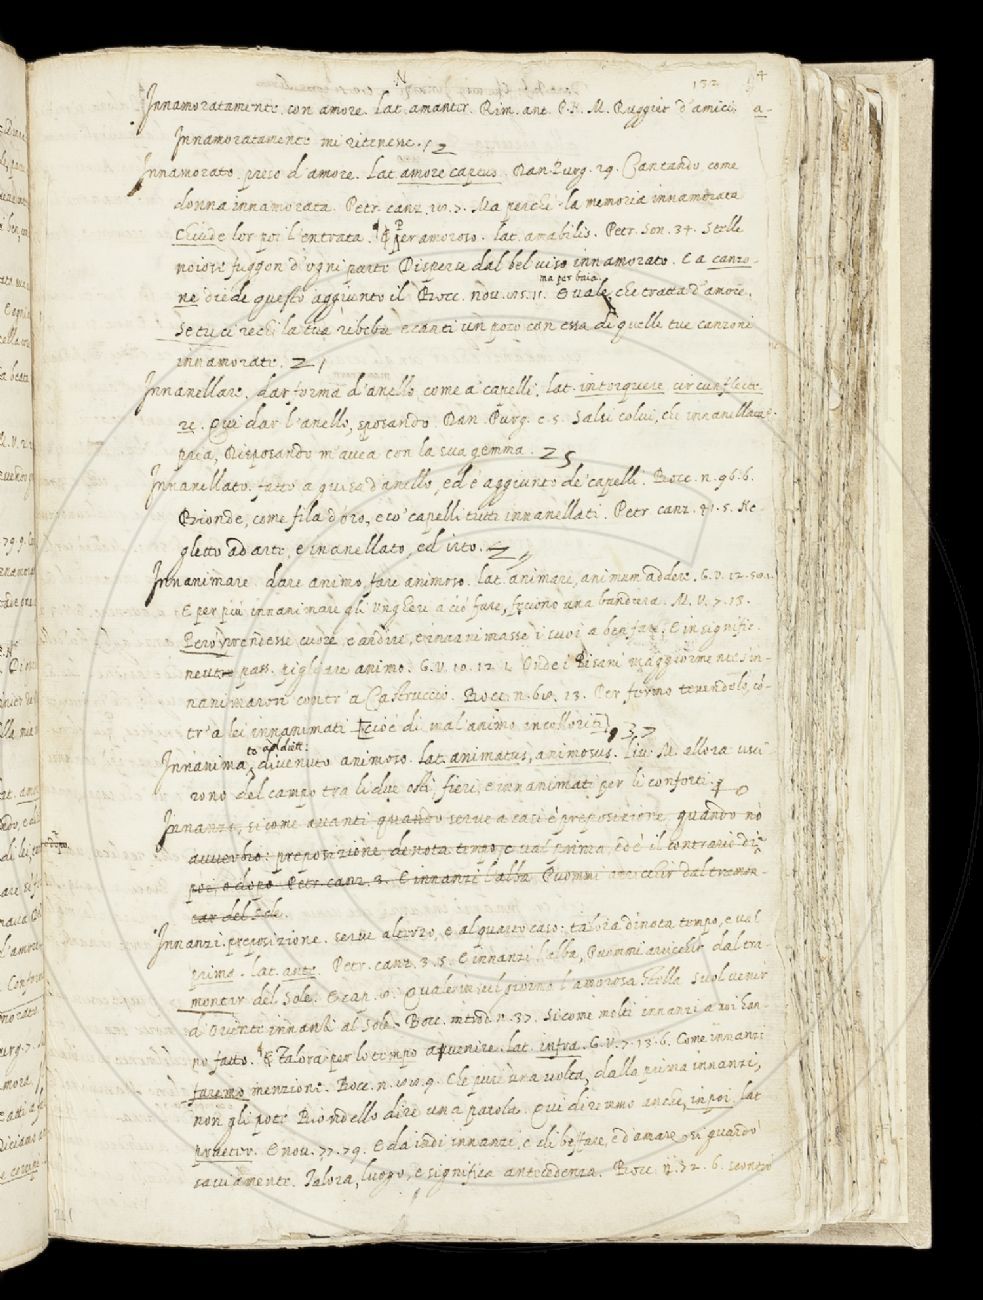 N
132
Innamoratamente con amore. Lat. amanter. Rim. ant. P. N. M. Ruggier d'amici. a-
Innamoratamente mi ritenesse. 12
Innamorato. preso d'amore. Lat. amore captus. Dan. Purg. 29. Cantando come
donna innamorata. Petr. canz. Ma perchè la memoria innamorata
Chiude lor poi l'entrata. & per amoroso. lat. amabilis. Petr. Son. 34. Stelle
noiose fuggon d'ogni parte Disperse dal bel viso innamorato. E a canzo-
ma per baia
ne diede questo aggiunto il Bocc. nov. che tratta d'amore.
Se tu ci rechi la tua ribeba e canti un poco con essa di quelle tue canzoni
innamorate. 21
Innanellare. dar forma d'anello come a' capelli. lat. intorquere circunflecte-
re. Qui dar l'anello, sposando. Dan. Purg. c. 5. Salsi colui, che innanellata
pria, Disposando m'avea con la sua gemma. 25
Innanellato. fatto a guisa d'anello, ed è aggiunto de' capelli. Bocc. n. 96. 6.
Bionde, come fila d'oro, e co' capelli tutti innanellati. Petr. canz. 5. Ne-
gletto ad arte, e innanellato, ed irto.
Innanimare. dare animo, fare animoso. lat. animare, animum addere. G. V. 12.
E per più innanimare gli Ungheri a ciò fare, feciono una bandiera. M. V. 7. 13.
Però prendesse cuore, e ardire, e innanimasse i suoi a ben fare. E in signific.
neutr. pass. pigliare animo. G. V. 10. 12. 1. Onde i Pisani maggiormente s'in-
nanimaron contr' a Castruccio. Bocc. n. 13. Per fermo tenendolo, co-
tr' a lei innanimati cioè di mal' animo incolloriti 37
to add
Innanima, divenuto animoso. lat. animatus, animosus. Liv. M. allora usci-
rono del campo tra li due osti, fieri, e innanimati per li conforti
Innanzi, si come avanti quando serve a casi è preposizione, quando no
avverbio: preposizione denota tempo, e val prima, cioè il contrario di
poi, o dopo. Petr. canz. 3. E innanzi l'alba Puommi arricchir dal tramon-
tar del Sole.
Innanzi. preposizione. serve al terzo, e al quarto caso: talora dinota tempo, e val
prima. lat. ante. Petr. canz. 3. 5. E innanzi l'alba, Puommi arricchir dal tra-
montar del Sole. E cap. Quale in sul giorno l'amorosa stella Suol venir
d'Oriente innanzi al Sole. Bocc. introd. n. 37. Si come molti innanzi a noi han-
no fatto. & talora per lo tempo avvenire. lat. infra. G. V. 7. 13. 6. Come innanzi
faremo menzione. Bocc. n. 9. Che più una volta, dalla prima innanzi,
non gli pote Biondello dire una parola. Qui diremmo anche, in poi. lat.
praeter. E nov. 77. 79. E da indi innanzi, e di beffare, e d'amare si guardò
saviamente. Talora, luogo, e significa antecedenza. Bocc. n. 32. 6. scontrò